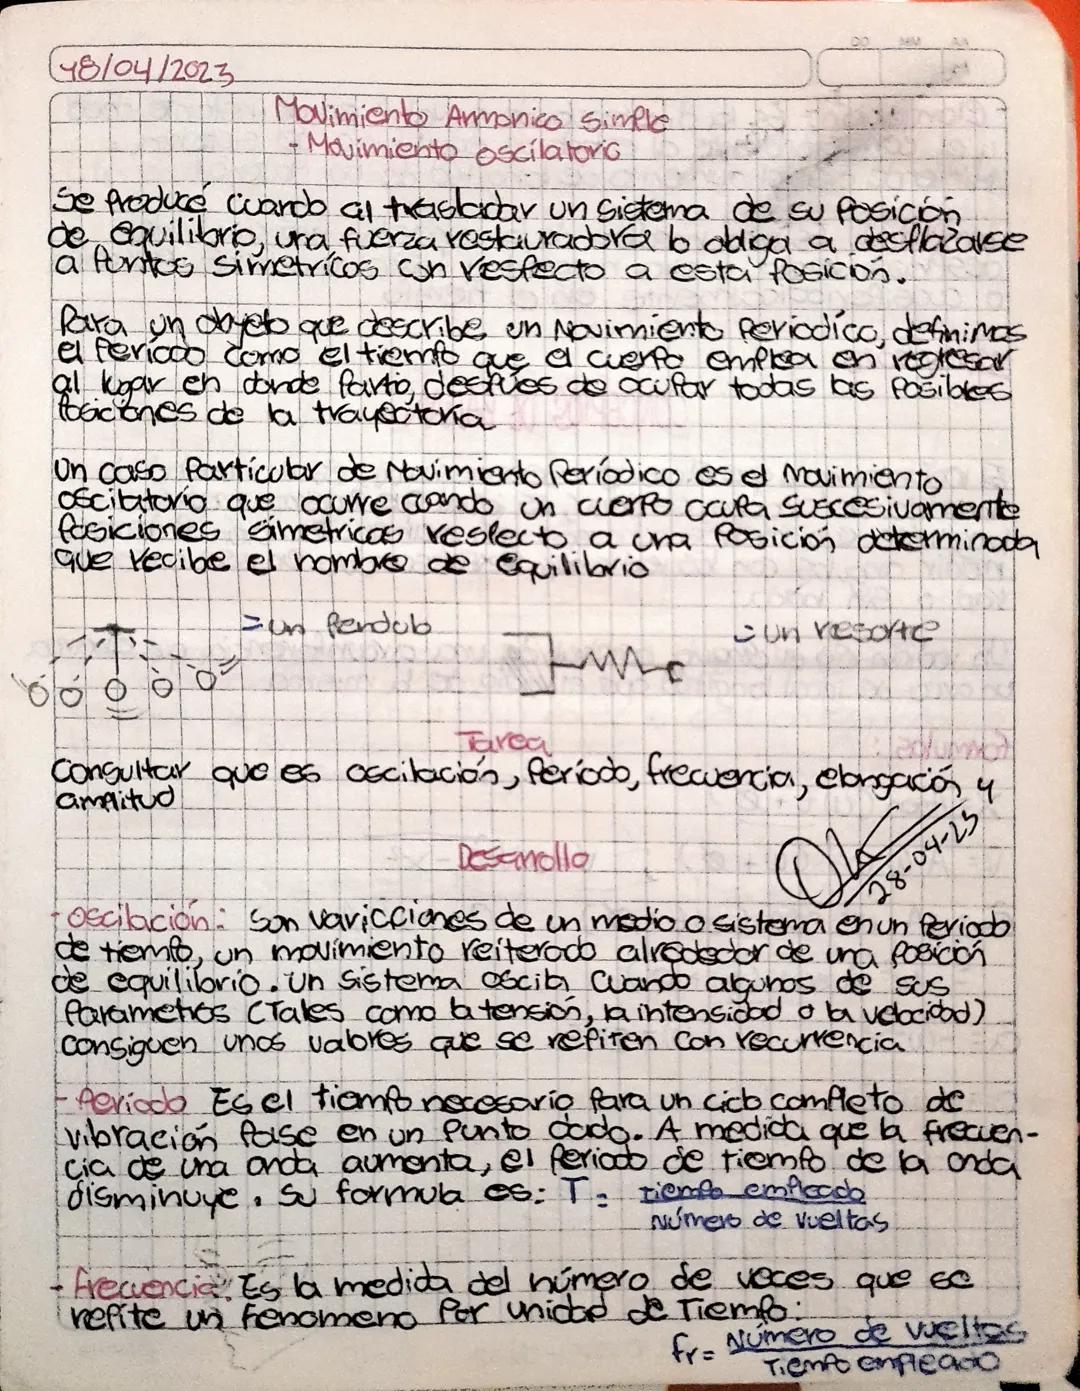 18/04/2023
Movimiento Armonico Simple
- Movimiento oscilatorio
Se produce cuando al trasladar un sistema de su Posición
de equilibrio, una fuerza restauradora lo obliga a desplazarse
a Puntos simetricos con respecto a esta Posición.
Para un objeto que describe un Movimiento Periodico, definimos
el Periodo como el tiempo que el cuerpo emplea en regresar
al lugar en donde Partio, despues de ocupar todas las Posibles
Posiciones de la trayectoria
Un caso Particular de Movimiento Periodico es el Movimiento
oscilatorio que ocurre cuando un cuerpo ocupa suscesivamente
Posiciones simetricas respecto a una Posición determinada
que recibe el nombre de equilibrio
= un Pendulo
= un resorte
Tarea
Consultar que es oscilación, Período, frecuencia, elongación y
amplitud
Ok
28-04-23
Desarrollo
- Oscilación: Son variaciones de un medio o sistema en un Periodo
de tiempo, un movimiento reiterado alrededor de una Posición
de equilibrio. Un sistema oscila Cuando algunos de sus
Parametros (Tales como la tensión, la intensidad o la velocidad)
consiguen unos valores que se repiten con recurrencia
- Periodo Es el tiempo necesario Para un ciclo completo de
vibración Pase en un Punto dado. A medida que la frecuen-
cia de una onda aumenta, el Periodo de tiempo de la onda
disminuye. Su formula es: T = Tiempo empleado
Número de vueltas
- frecuencia: Es la medida del número de veces que se
repite un fenomeno Por unidad de Tiempo:
fr = Número de vueltas
Tiempo empleado